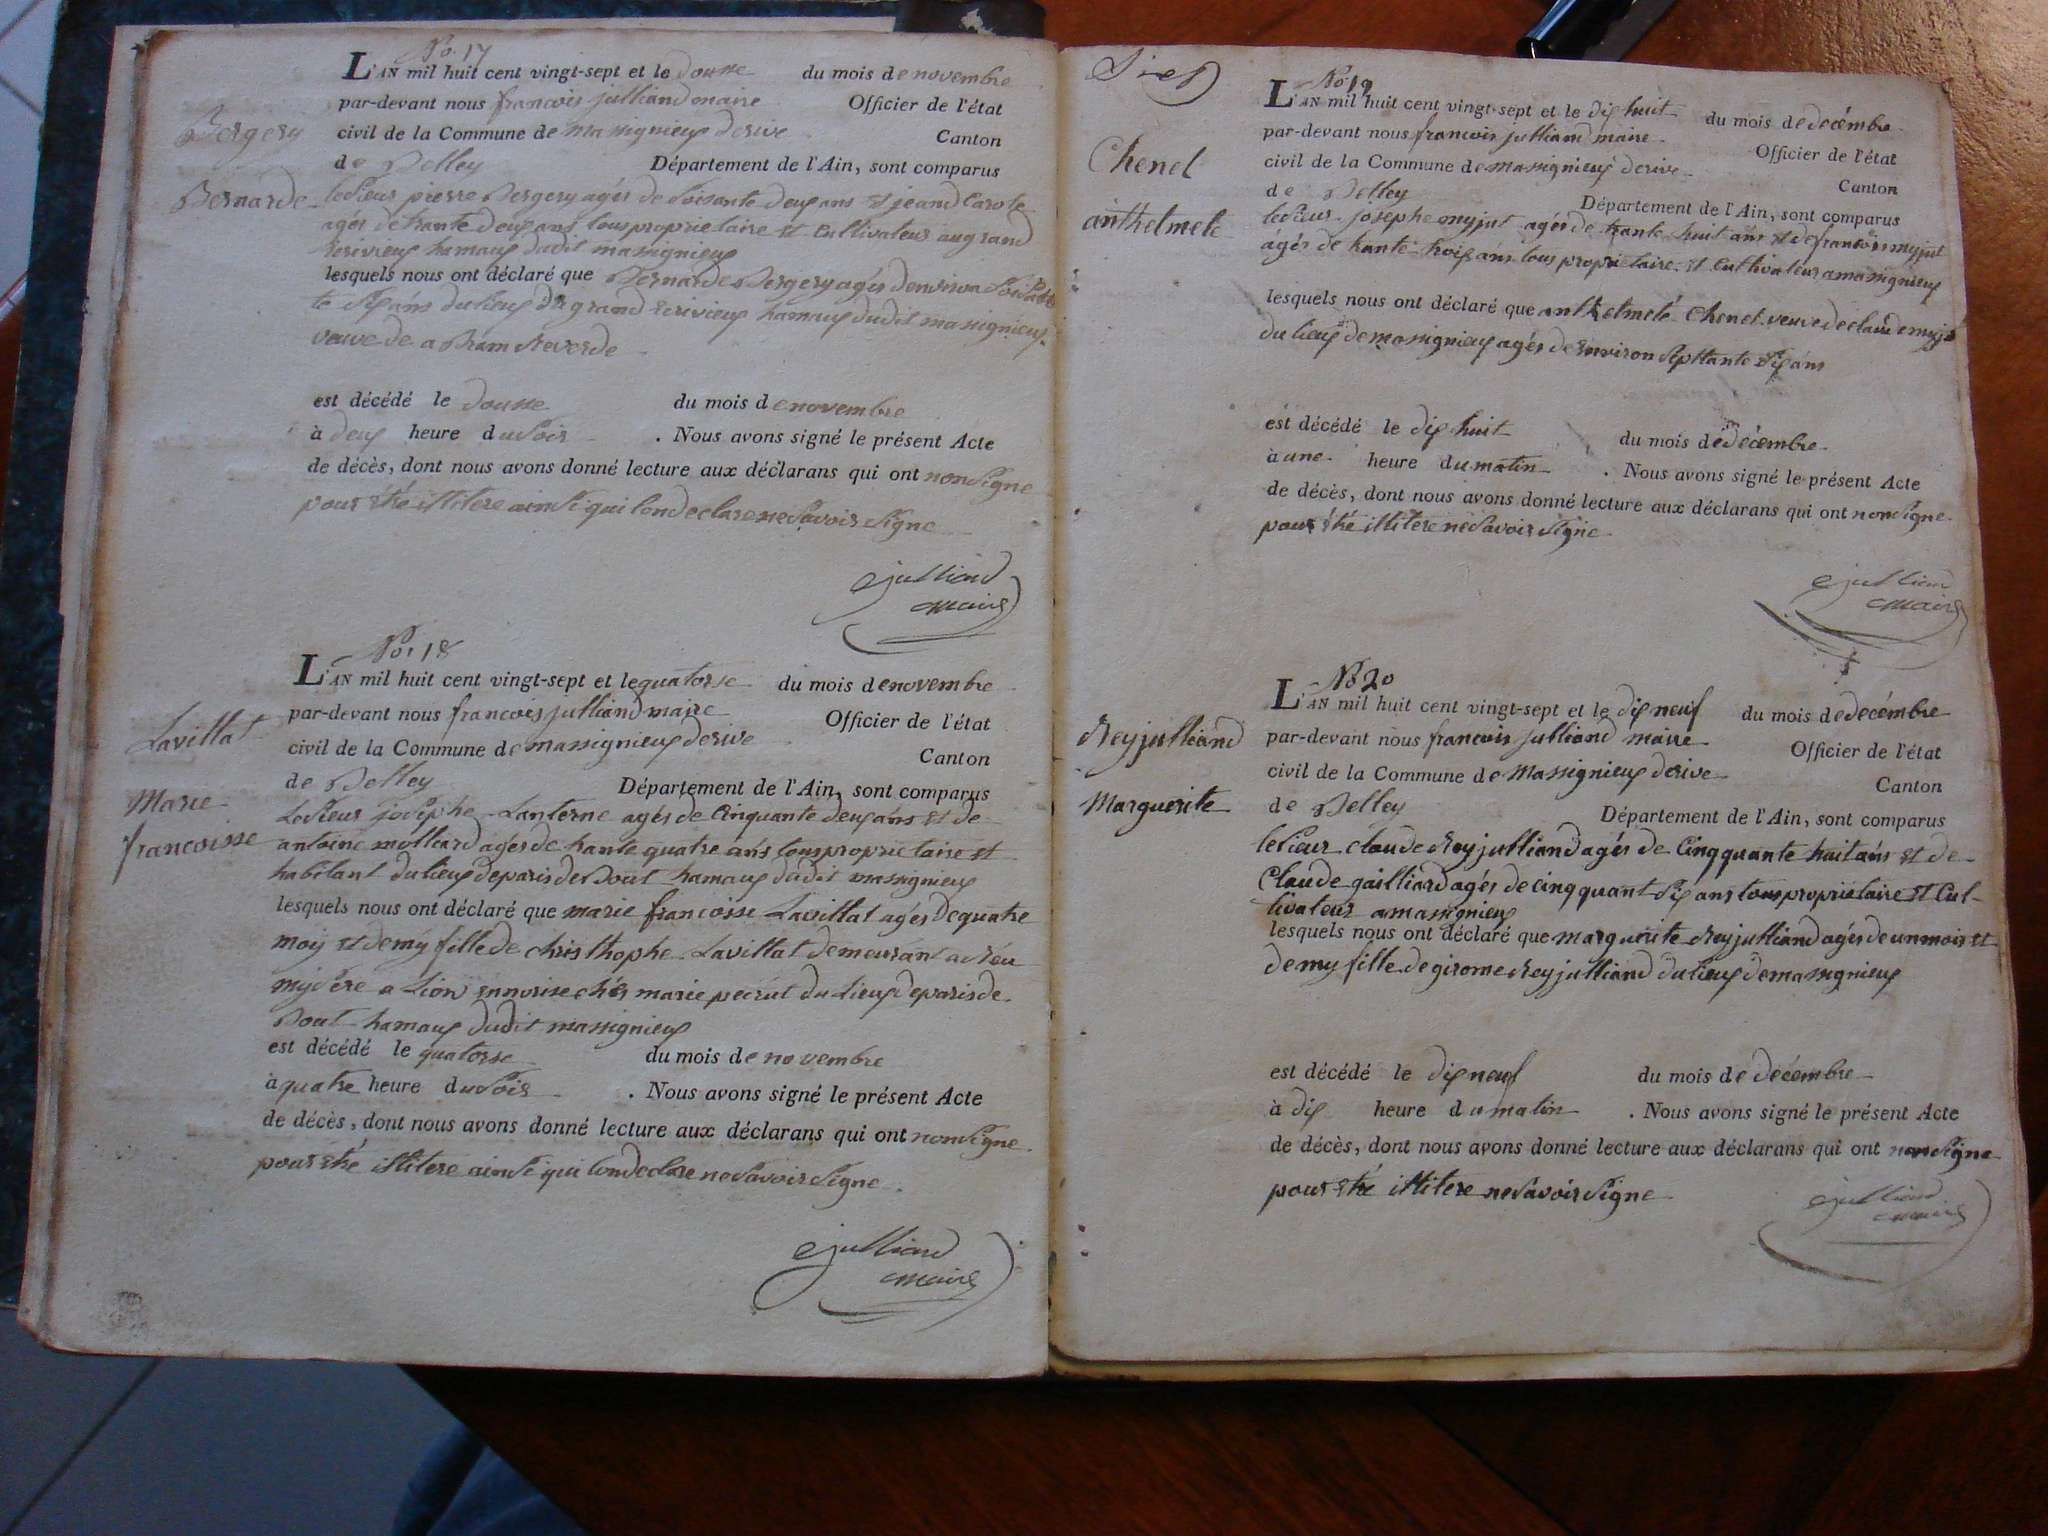 No. 17
L'AN mil huit cent vingt-sept et le dousse du mois de novembre
par-devant nous francois julliand maire Officier de l'état
civil de la Commune de massignieux derive Canton
de Belley Département de l'Ain, sont comparus
Bergery
Bernarde
le sieur pierre Bergery agés de soisante deux ans et jean Carote
agés de trante deux ans tous proprietaire et Cultivateur au grand
hamaux dudit massignieux
lesquels nous ont déclaré que Bernarde Bergery agés denviron soissante
six ans du lieux du grand hamaux dudit massignieux
veuve de abram Reverde
est décédé le dousse du mois de novembre
à deux heure du soir . Nous avons signé le présent Acte
de décès, dont nous avons donné lecture aux déclarans qui ont non signe
pour etré illitere ainsi qui lon declare ne savoir signe
julliand
maire
No. 18
L'AN mil huit cent vingt-sept et le quatorse du mois de novembre
par-devant nous francois julliand maire Officier de l'état
civil de la Commune de massignieux derive Canton
de Belley Département de l'Ain, sont comparus
Lavillat
Marie
francoisse
le sieur josephe Lanterne agés de Cinquante deux ans et de
antoine molliard agés de trante quatre ans tous proprietaire et
habitant du lieux de paris de Bout hamaux dudit massignieux
lesquels nous ont déclaré que marie francoisse Lavillat agés de quatre
mois et demy fille de christhophe Lavillat demeurant a
a Lion ennorise chés marie du lieux de paris de
Bout hamaux dudit massignieux
est décédé le quatorse du mois de novembre
à quatre heure du soir . Nous avons signé le présent Acte
de décès, dont nous avons donné lecture aux déclarans qui ont non signe
pour etré illitere ainsi qui lon declare ne savoir signe
julliand
maire
No. 19
L'AN mil huit cent vingt-sept et le dix huit du mois de decémbre
par-devant nous francois julliand maire Officier de l'état
civil de la Commune de massignieux derive Canton
de Belley Département de l'Ain, sont comparus
Chenet
anthelmete
le sieur josephe myjat agés de trante huit ans et de francois myjat
agés de trante trois ans tous proprietaire et Cultivateur a massignieux
lesquels nous ont déclaré que anthelmete Chenet veuve de claude myjat
du lieux de massignieux agés de environ septtante six ans
est décédé le dix huit du mois de decémbre
à une heure du matin . Nous avons signé le présent Acte
de décès, dont nous avons donné lecture aux déclarans qui ont non signe
pour etré illitere ne savoir signe
julliand
maire
No 20
L'AN mil huit cent vingt-sept et le dix neuf du mois de decémbre
par-devant nous francois julliand maire Officier de l'état
civil de la Commune de Massignieux derive Canton
de Belley Département de l'Ain, sont comparus
Reyjulliand
Marguerite
le sieur claude Reyjulliand agés de Cinqquante huit ans et de
Claude gailliard agés de cinqquant six ans tous proprietaire et Cul-
tivateur a massignieux
lesquels nous ont déclaré que marguerite Reyjulliand agés de un mois et
demy fille de girome Reyjulliand du lieux de massignieux
est décédé le dix neuf du mois de décémbre
à dix heure du matin . Nous avons signé le présent Acte
de décès, dont nous avons donné lecture aux déclarans qui ont non signe
pour etré illitere ne savoir signe
julliand
maire